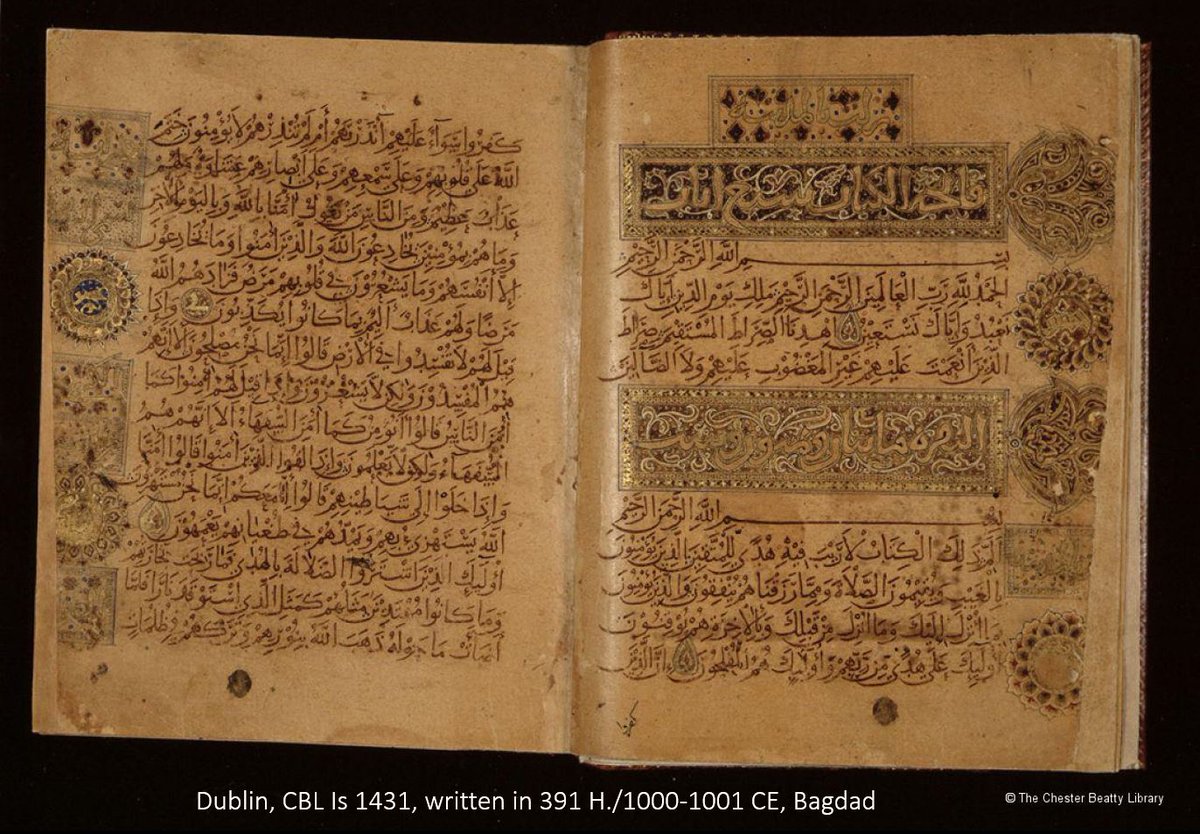 فاتحة الكتاب سبع آيات
بسم الله الرحمن الرحيم
الحمد لله رب العالمين الرحمن الرحيم ملك يوم الدين إياك
نعبد وإياك نستعين اهدنا الصراط المستقيم صراط
الذين أنعمت عليهم غير المغضوب عليهم ولا الضالين
البقرة مائتان وثمانون وست
بسم الله الرحمن الرحيم
الم ذلك الكتاب لا ريب فيه هدى للمتقين الذين يؤمنون
بالغيب ويقيمون الصلاة ومما رزقناهم ينفقون والذين يؤمنون
بما أنزل إليك وما أنزل من قبلك وبالآخرة هم يوقنون
أولئك على هدى من ربهم وأولئك هم المفلحون إن الذين
كفروا سواء عليهم أأنذرتهم أم لم تنذرهم لا يؤمنون ختم
الله على قلوبهم وعلى سمعهم وعلى أبصارهم غشاوة ولهم
عذاب عظيم ومن الناس من يقول آمنا بالله وباليوم الآخر
وما هم بمؤمنين يخادعون الله والذين آمنوا وما يخادعون
إلا أنفسهم وما يشعرون في قلوبهم مرض فزادهم الله
مرضا ولهم عذاب أليم بما كانوا يكذبون وإذا
قيل لهم لا تفسدوا في الأرض قالوا إنما نحن مصلحون ألا إنهم
هم المفسدون ولكن لا يشعرون وإذا قيل لهم آمنوا كما
آمن الناس قالوا أنؤمن كما آمن السفهاء ألا إنهم هم
السفهاء ولكن لا يعلمون وإذا لقوا الذين آمنوا قالوا آمنا
وإذا خلوا إلى شياطينهم قالوا إنا معكم إنما نحن مستهزئون
الله يستهزئ بهم ويمدهم في طغيانهم يعمهون
أولئك الذين اشتروا الضلالة بالهدى فما ربحت تجارتهم
وما كانوا مهتدين مثلهم كمثل الذي استوقد نارا فلما
أضاءت ما حوله ذهب الله بنورهم وتركهم في ظلمات
Dublin, CBL Is 1431, written in 391 H./1000-1001 CE, Bagdad
© The Chester Beatty Library